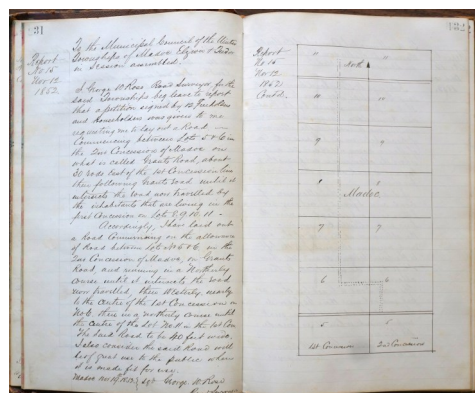 131
Report
No 15
Nov 12
1852
To the Municipal Council of the United
Townships of Madoc Elzevir & Tudor
in Session assembled.
I George W Rose Road Surveyor for the
said Townships beg leave to report
that a petition signed by 12 Freeholders
and householders was given to me
requesting me to lay out a Road
Commencing between Lots 5 & 6 in
the 2nd Concession of Madoc on
what is called Grants Road, about
60 rods East of the 1st Concession line
then following Grants road until it
intersects the road now travelled by
the inhabitants that are living in the
first Concession on Lots 8, 9, 10, 11 -
Accordingly, I have laid out
a Road Commencing on the allowance
of Road between Lots No 5 & 6 in the
2nd Concession of Madoc, on Grants
Road, and running in a Northerly
course until it intersects the road
now travelled then Westerly nearly
to the Centre of the 1st Concession on
No 6 then in a Northerly course until
the Centre of the Lot No 11 in the 1st Con
The said Road to be 40 feet wide,
I also consider the said Road will
be of great use to the public when
it is made fit for use.
Madoc Nov 1852 sgd George W Rose
Road Surveyor
132
Report
No 15
Nov 12
1852
Contd.
11 11
North
10 10
9 9
8
Madoc
7 7
6 6
5 5
1st Concession 2nd Concession